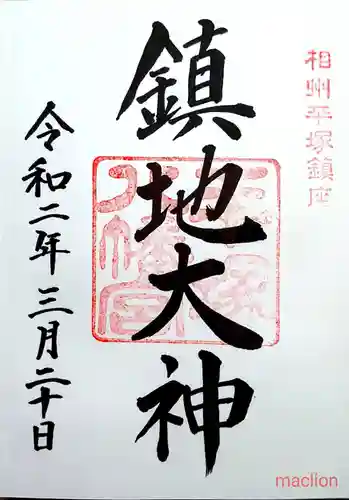 相州平塚鎮座
鎮地大神
平塚八幡宮
令和二年三月二十日
maclion